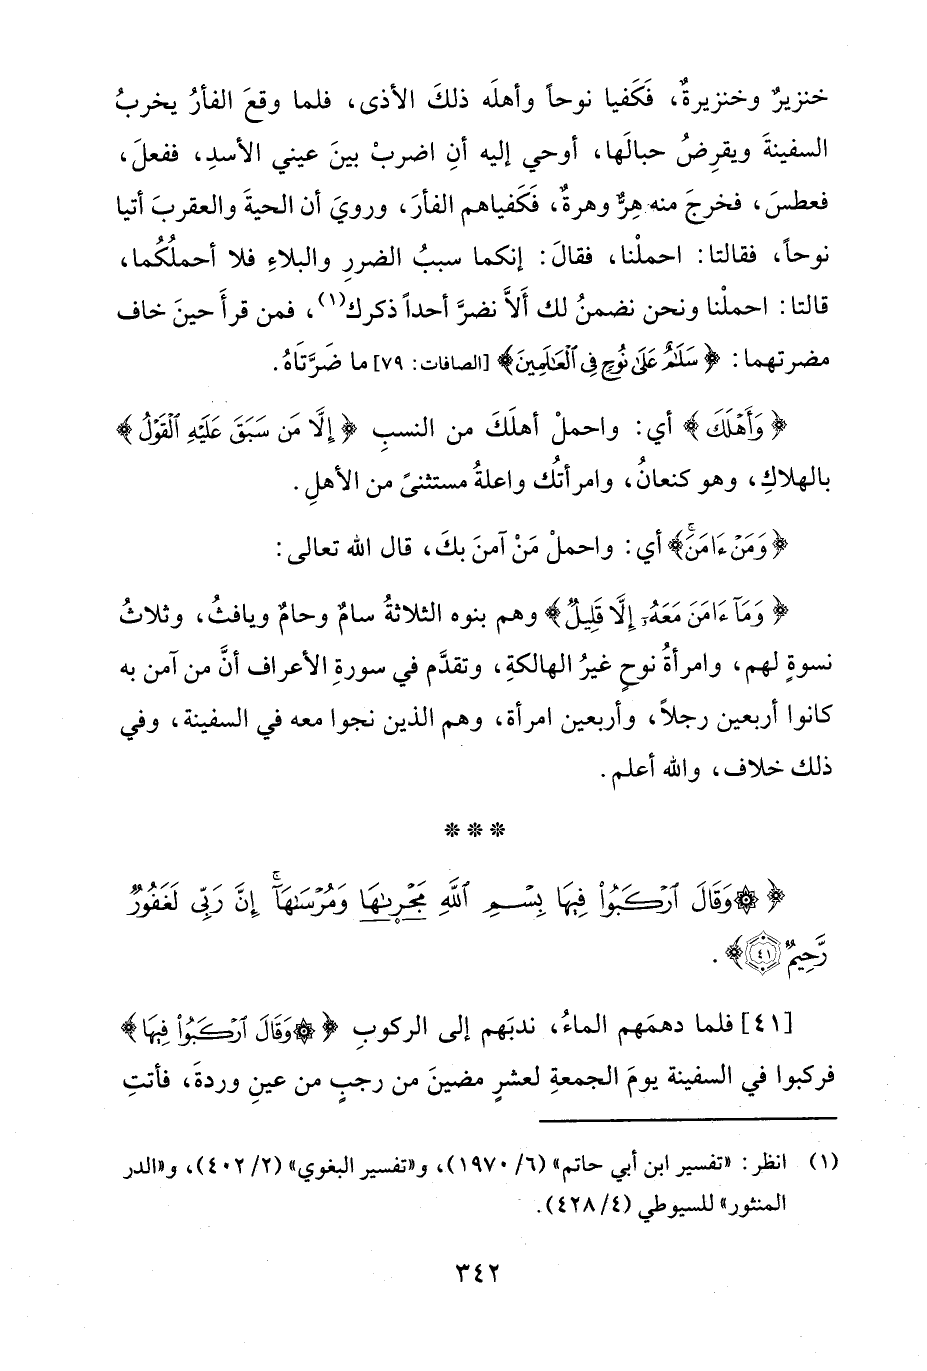 خنزيرٌ وخنزيرةٌ، فَكَفيا نوحاً وأهلَه ذلكَ الأذى، فلما وقعَ الفأرُ يخربُ
السفينةَ ويقرِضُ حبالَها، أوحي إليه أنِ اضربْ بينَ عيني الأسدِ، ففعلَ،
فعطسَ، فخرجَ منه هِرٌّ وهرةٌ، فَكَفياهم الفأرَ، ورويَ أن الحيةَ والعقربَ أتيا
نوحاً، فقالتا: احملْنا، فقالَ: إنكما سببُ الضررِ والبلاءِ فلا أحملُكُما،
قالتا: احملْنا ونحن نضمنُ لك أَلاَّ نضرَّ أحداً ذكرك(١)، فمن قرأَ حينَ خاف
مضرتهما: ﴿سَلَٰمٌ عَلَىٰ نُوحٍ فِي ٱلْعَٰلَمِينَ﴾ [الصافات: ٧٩] ما ضَرَّتَاهُ.
﴿وَأَهْلَكَ﴾ أي: واحملْ أهلَكَ من النسبِ ﴿إِلَّا مَن سَبَقَ عَلَيْهِ ٱلْقَوْلُ﴾
بالهلاكِ، وهو كنعانُ، وامرأتُك واعلةُ مستثنىً من الأهلِ.
﴿وَمَنْ ءَامَنَ ۚ﴾ أي: واحملْ مَنْ آمنَ بكَ، قال الله تعالى:
﴿وَمَآ ءَامَنَ مَعَهُۥٓ إِلَّا قَلِيلٌ﴾ وهم بنوه الثلاثةُ سامٌ وحامٌ ويافثُ، وثلاثُ
نسوةٍ لهم، وامرأةُ نوحٍ غيرُ الهالكةِ، وتقدَّم في سورةِ الأعراف أنَّ من آمن به
كانوا أربعين رجلاً، وأربعين امرأة، وهم الذين نجوا معه في السفينة، وفي
ذلك خلاف، والله أعلم.
* * *
﴿۞وَقَالَ ٱرْكَبُوا۟ فِيهَا بِسْمِ ٱللَّهِ مَجْر۪ىٰهَا وَمُرْسَىٰهَآ ۚ إِنَّ رَبِّي لَغَفُورٌ
رَّحِيمٌ ٤١﴾.
[٤١] فلما دهمَهم الماءُ، ندبَهم إلى الركوبِ ﴿۞وَقَالَ ٱرْكَبُوا۟ فِيهَا﴾
فركبوا في السفينة يومَ الجمعةِ لعشرٍ مضينَ من رجبٍ من عينِ وردةَ، فأتتِ
(١) انظر: «تفسير ابن أبي حاتم» (٦/ ١٩٧٠)، و«تفسير البغوي» (٢/ ٤٠٢)، و«الدر
المنثور» للسيوطي (٤/ ٤٢٨).
٣٤٢